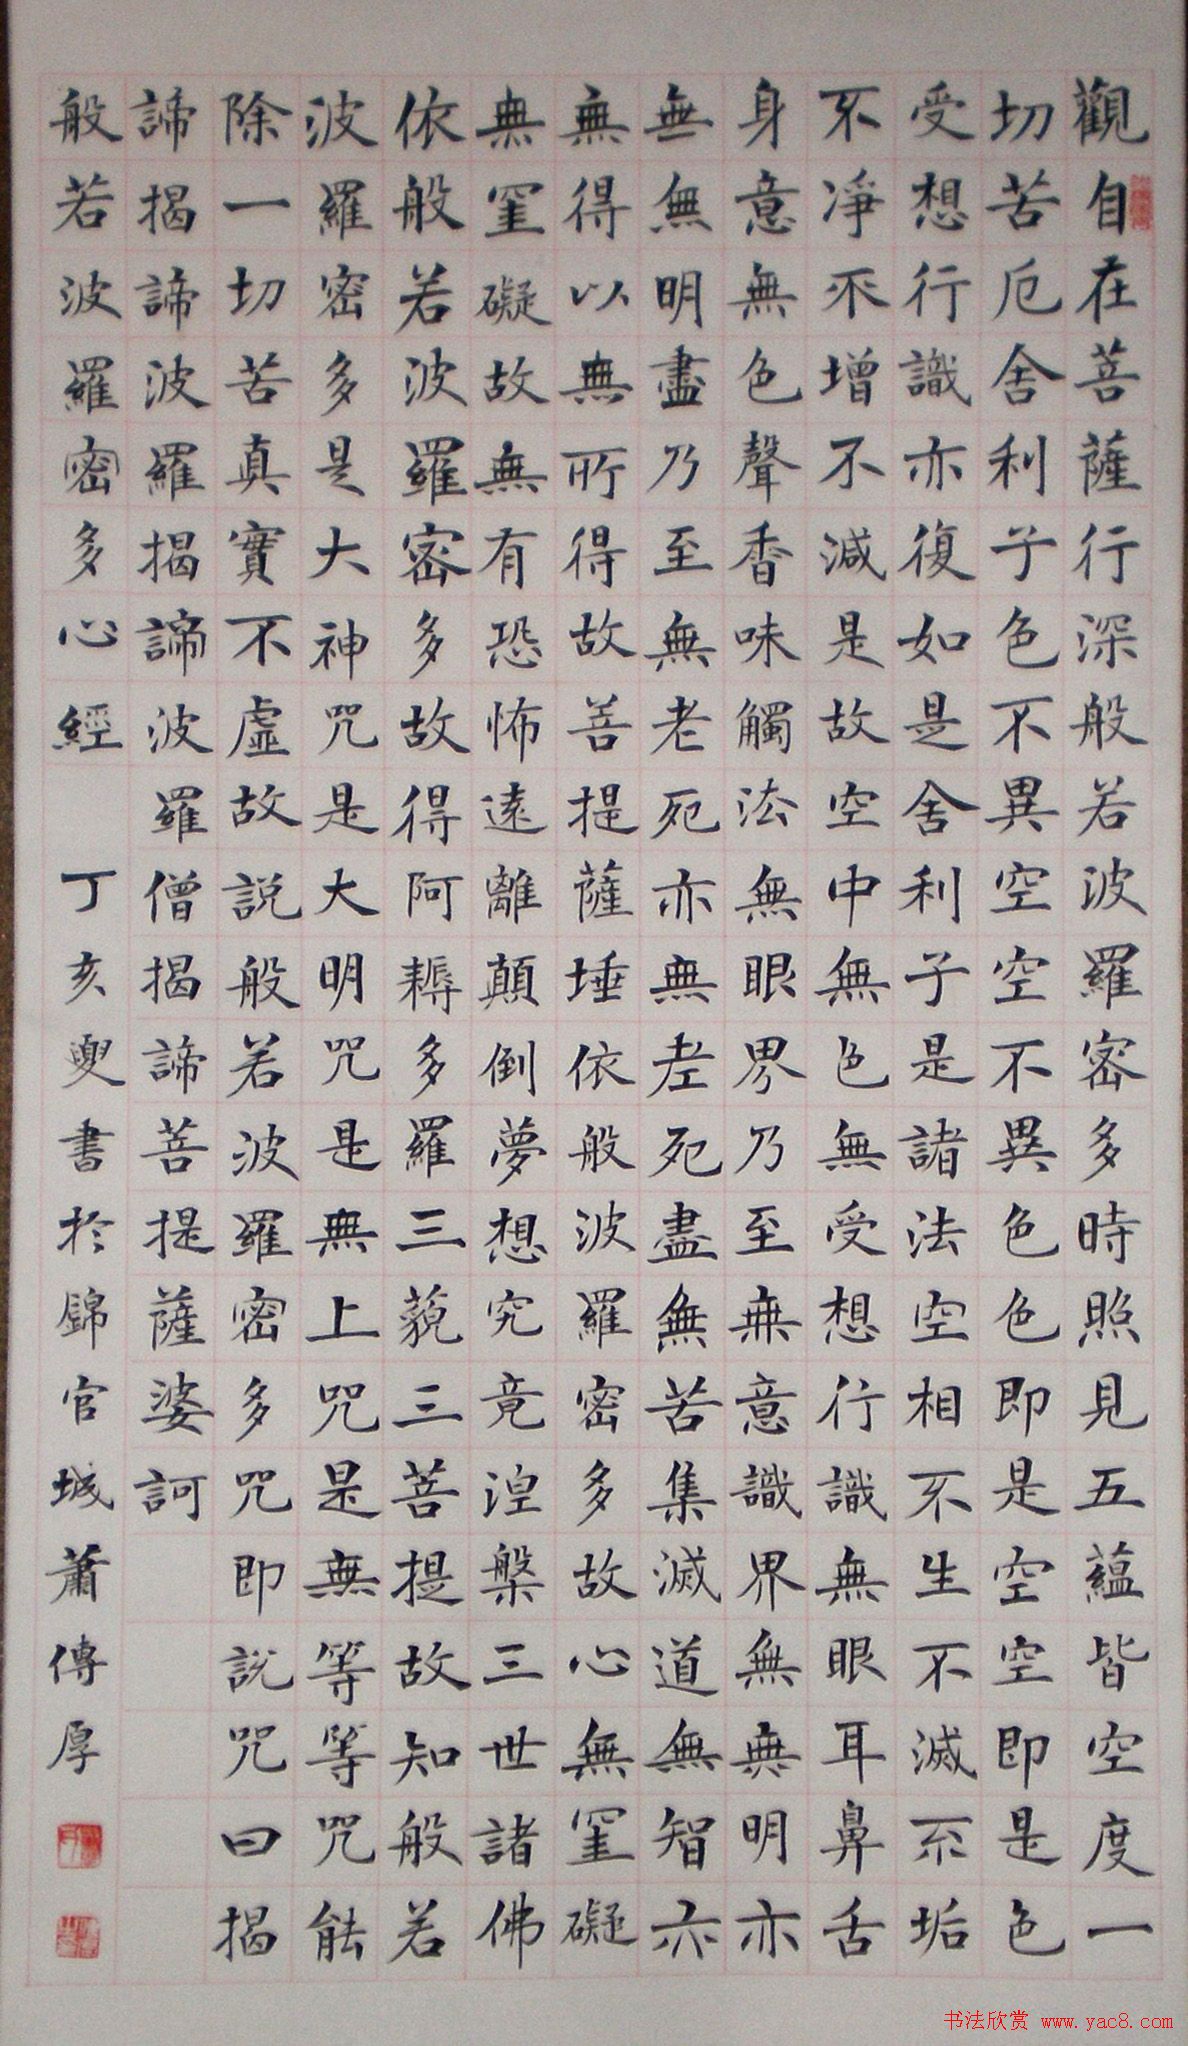 觀自在菩薩行深般若波羅密多時照見五蘊皆空度一
切苦厄舍利子色不異空空不異色色即是空空即是色
受想行識亦復如是舍利子是諸法空相不生不滅不垢
不凈不增不減是故空中無色無受想行識無眼耳鼻舌
身意無色聲香味觸法無眼界乃至無意識界無無明亦
無無明盡乃至無老死亦無老死盡無苦集滅道無智亦
無得以無所得故菩提薩埵依般波羅密多故心無罣礙
無罣礙故無有恐怖遠離顛倒夢想究竟涅槃三世諸佛
依般若波羅密多故得阿耨多羅三藐三菩提故知般若
波羅密多是大神咒是大明咒是無上咒是無等等咒能
除一切苦真實不虛故説般若波羅密多咒即説咒曰揭
諦揭諦波羅揭諦波羅僧揭諦菩提薩婆訶
般若波羅密多心經 丁亥叟書於錦官城蕭傳厚
书法欣赏 www.yac8.com